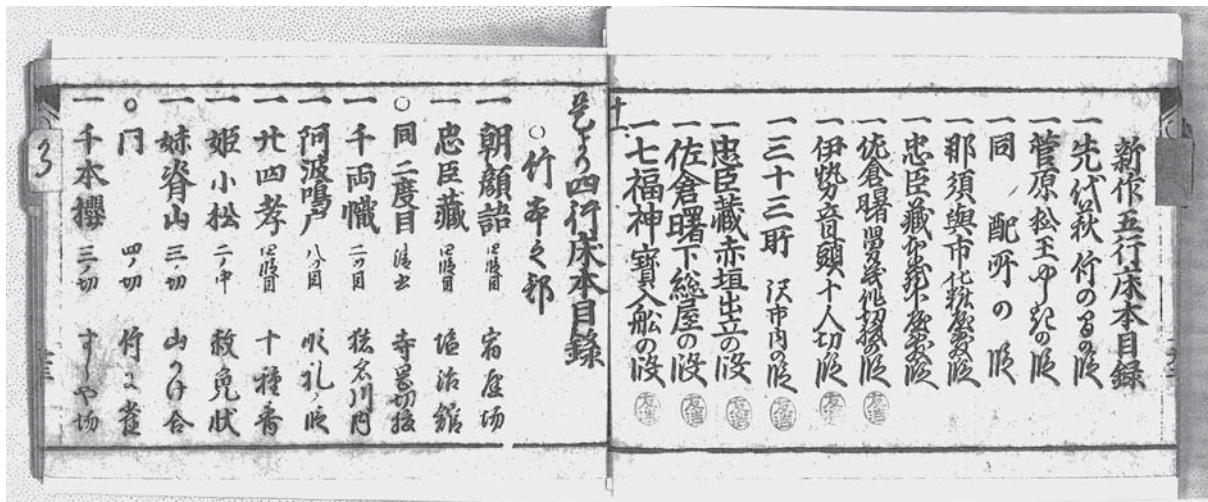 新作五行床本目録
一先代萩 竹の間の段
一菅原松王の段
一同 配所の段
一那須與市 化粧屋敷の段
一忠臣藏
一佐倉曙 切腹の段
一伊勢音頭 十人切の段
一三十三所 沢市内の段
一忠臣藏赤垣出立の段
一佐倉曙下総屋の段
一七福神寳入舩の段
是より四行床本目錄
○竹本之部
一朝顔話 四段目 宿屋場
一忠臣藏 四段目 塩冶館
○同二度目 清書 寺岡切腹
一千両幟 二ツ目 猪名川内
一阿波鳴戸 八ツ目 順礼ノ段
一廿四孝 四段目 十種香
一姫小松 二ノ中 赦免状
一妹脊山 三ノ切 山のかけ合
○门 四ノ切 竹に雀
一千本櫻 三ノ切 すしや場
3